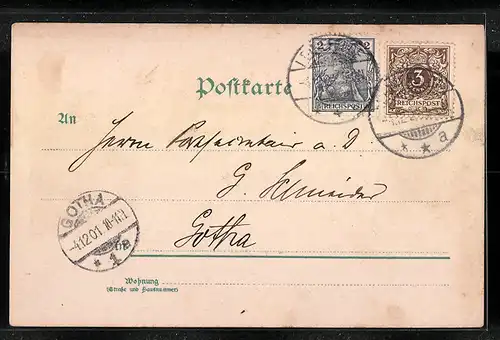 2 2
REICHSPOST
3
REICHSPOST
a
Postkarte
An
Herrn Postsecretair a. D.
G. Schneider
GOTHA
4.12.01. 10-11V.
* 1 a
in
Gotha
Wohnung
(Straße und Hausnummer)